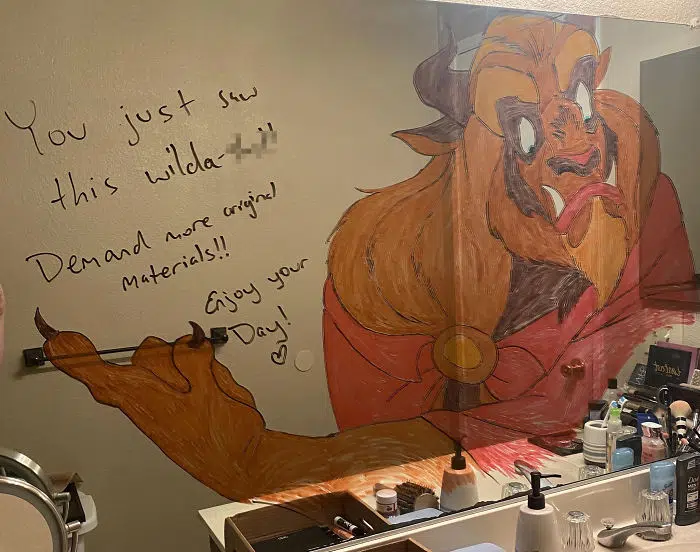 You just saw
this wilda-
Demand more original
materials!!
Enjoy your
Day!